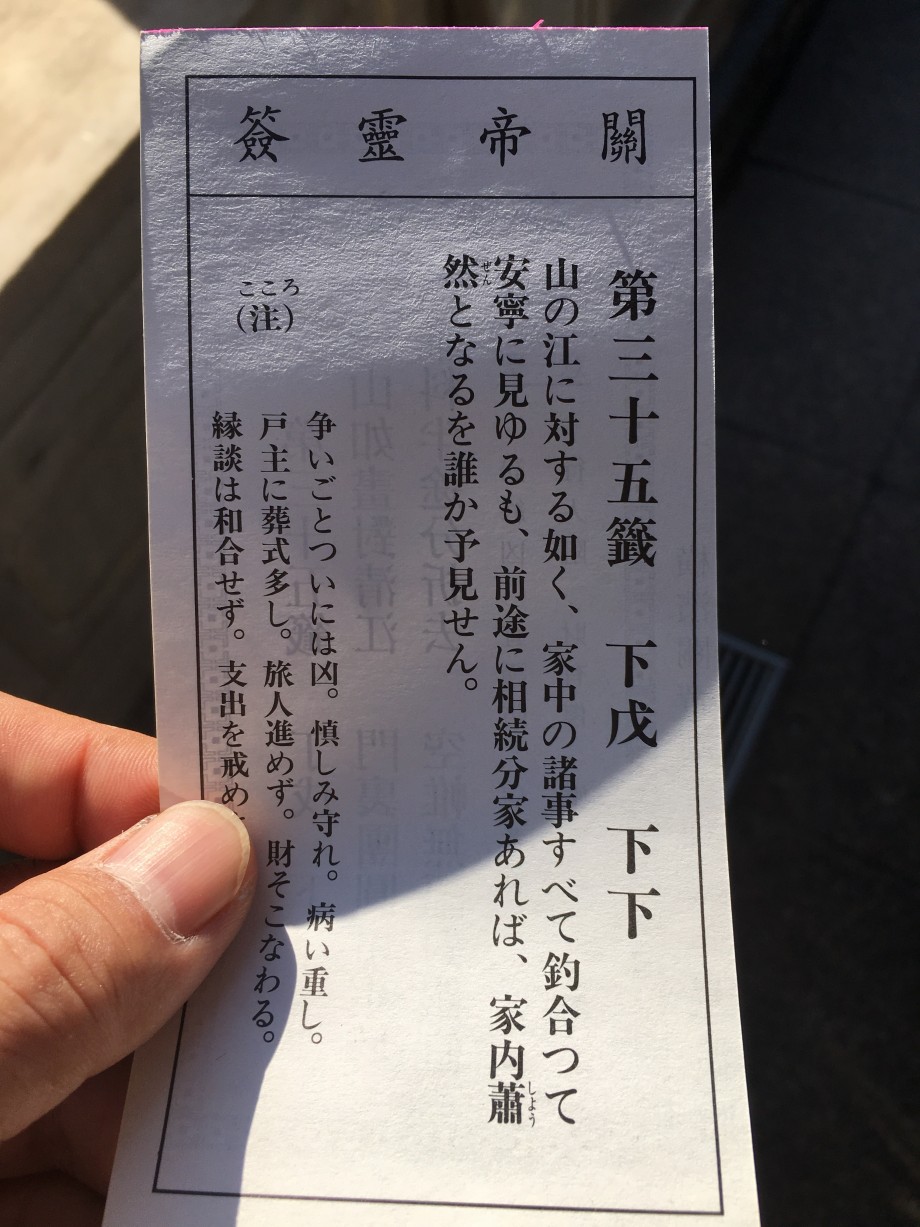 關帝靈簽
第三十五籤 下戊 下下
山の江に対する如く、家中の諸事すべて釣合つて
安寧に見ゆるも、前途に相続分家あれば、家内蕭
しよう
然となるを誰か予見せん。
ぜん
こころ
(注)
争いごとついには凶。慎しみ守れ。病い重し。
戸主に葬式多し。旅人進めず。財そこなわる。
縁談は和合せず。支出を戒め